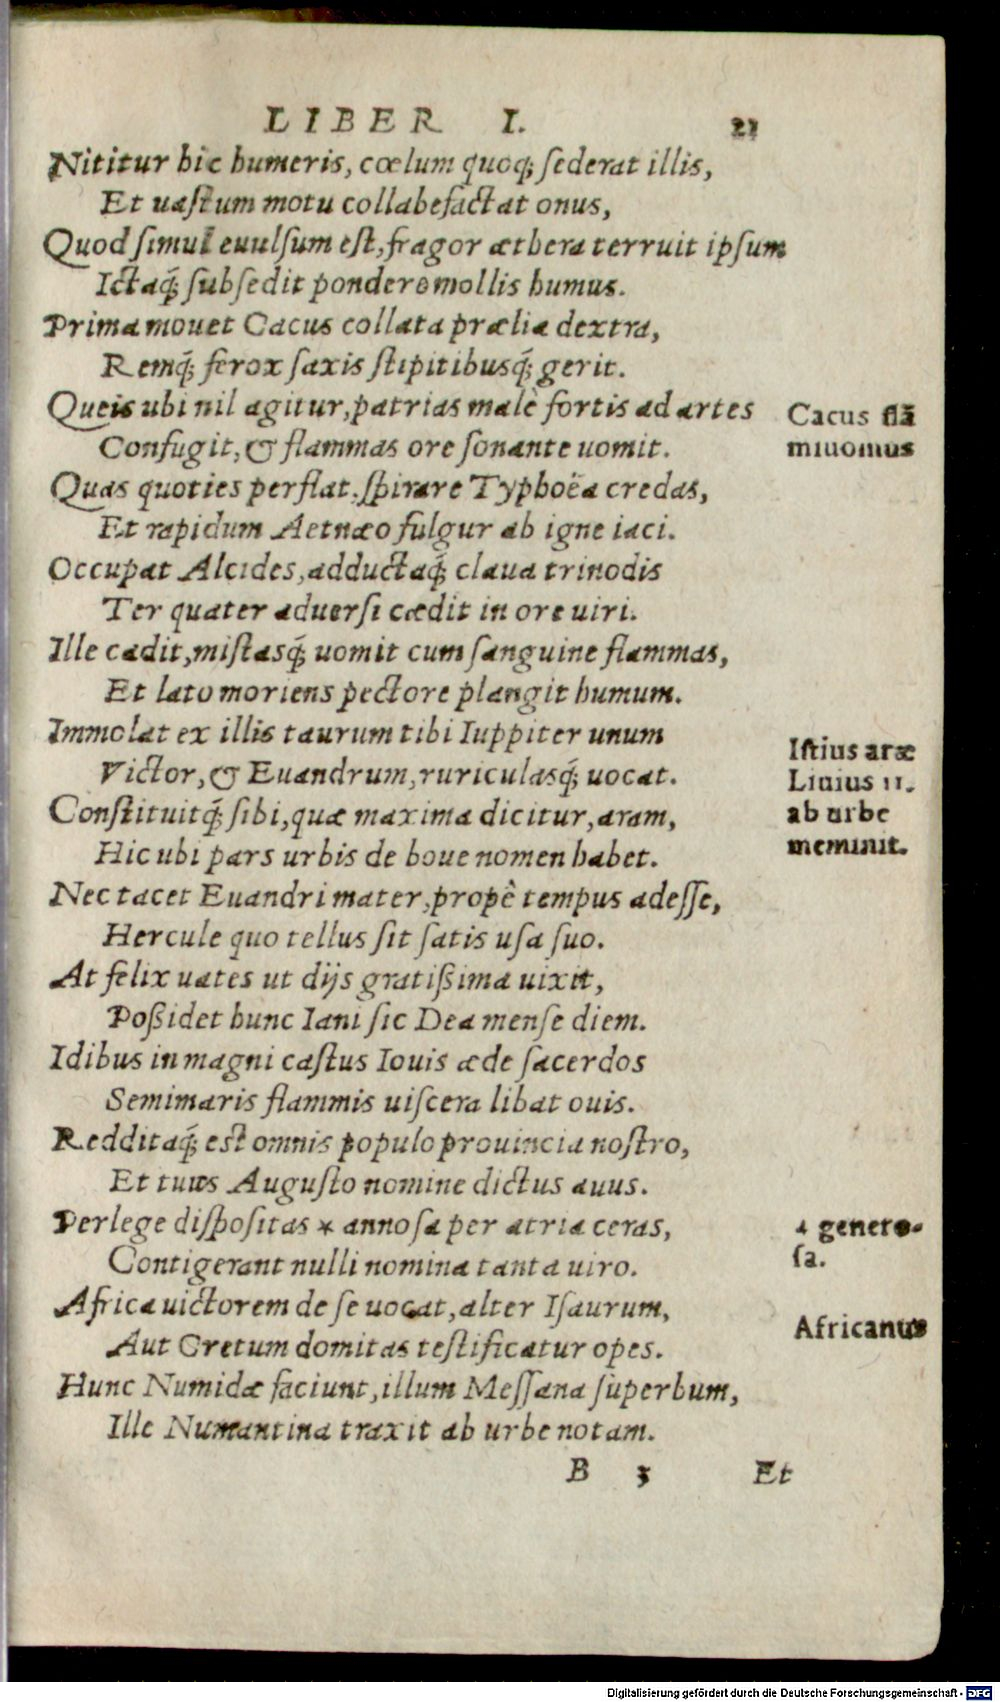 LIBER I. 21
Nititur hic humeris, cœlum quoq; ſederat illis,
Et uaſtum motu collabefactat onus,
Quod ſimul euulſum eſt, fragor æthera terruit ipſum
Ictaq́; ſubſedit pondere mollis humus.
Prima mouet Cacus collata prælia dextra,
Remq́; ferox ſaxis ſtipitibusq́; gerit.
Queis ubi nil agitur, patrias malè fortis ad artes
Confugit, & flammas ore ſonante uomit.
Quas quoties perflat, ſpirare Typhoëa credas,
Et rapidum Aetnæo fulgur ab igne iaci.
Occupat Alcides, adductaq́; claua trinodis
Ter quater aduerſi cædit in ore uiri.
Ille cadit, miſtasq́; uomit cum ſanguine flammas,
Et lato moriens pectore plangit humum.
Immolat ex illis taurum tibi Iuppiter unum
Victor, & Euandrum, ruriculasq́; uocat.
Conſtituitq́; ſibi, quæ maxima dicitur, aram,
Hic ubi pars urbis de boue nomen habet.
Nec tacet Euandri mater, propè tempus adeſſe,
Hercule quo tellus ſit ſatis uſa ſuo.
At felix uates ut dijs gratißima uixit,
Poßidet hunc Iani ſic Dea menſe diem.
Idibus in magni caſtus Iouis æde ſacerdos
Semimaris flammis uiſcera libat ouis.
Redditaq́; eſt omnis populo prouincia noſtro,
Et tuus Auguſto nomine dictus auus.
Perlege diſpoſitas * annoſa per atria ceras,
Contigerant nulli nomina tanta uiro.
Africa uictorem de ſe uocat, alter Iſaurum,
Aut Cretum domitas teſtificatur opes.
Hunc Numidæ faciunt, illum Meſſana ſuperbum,
Ille Numantina traxit ab urbe notam.
B 3 Et
Cacus flā
miuomus
Iſtius aræ
Liuius 11.
ab urbe
meminit.
* genero-
ſa.
Africanus
Digitalisierung gefördert durch die Deutsche Forschungsgemeinschaft - DFG